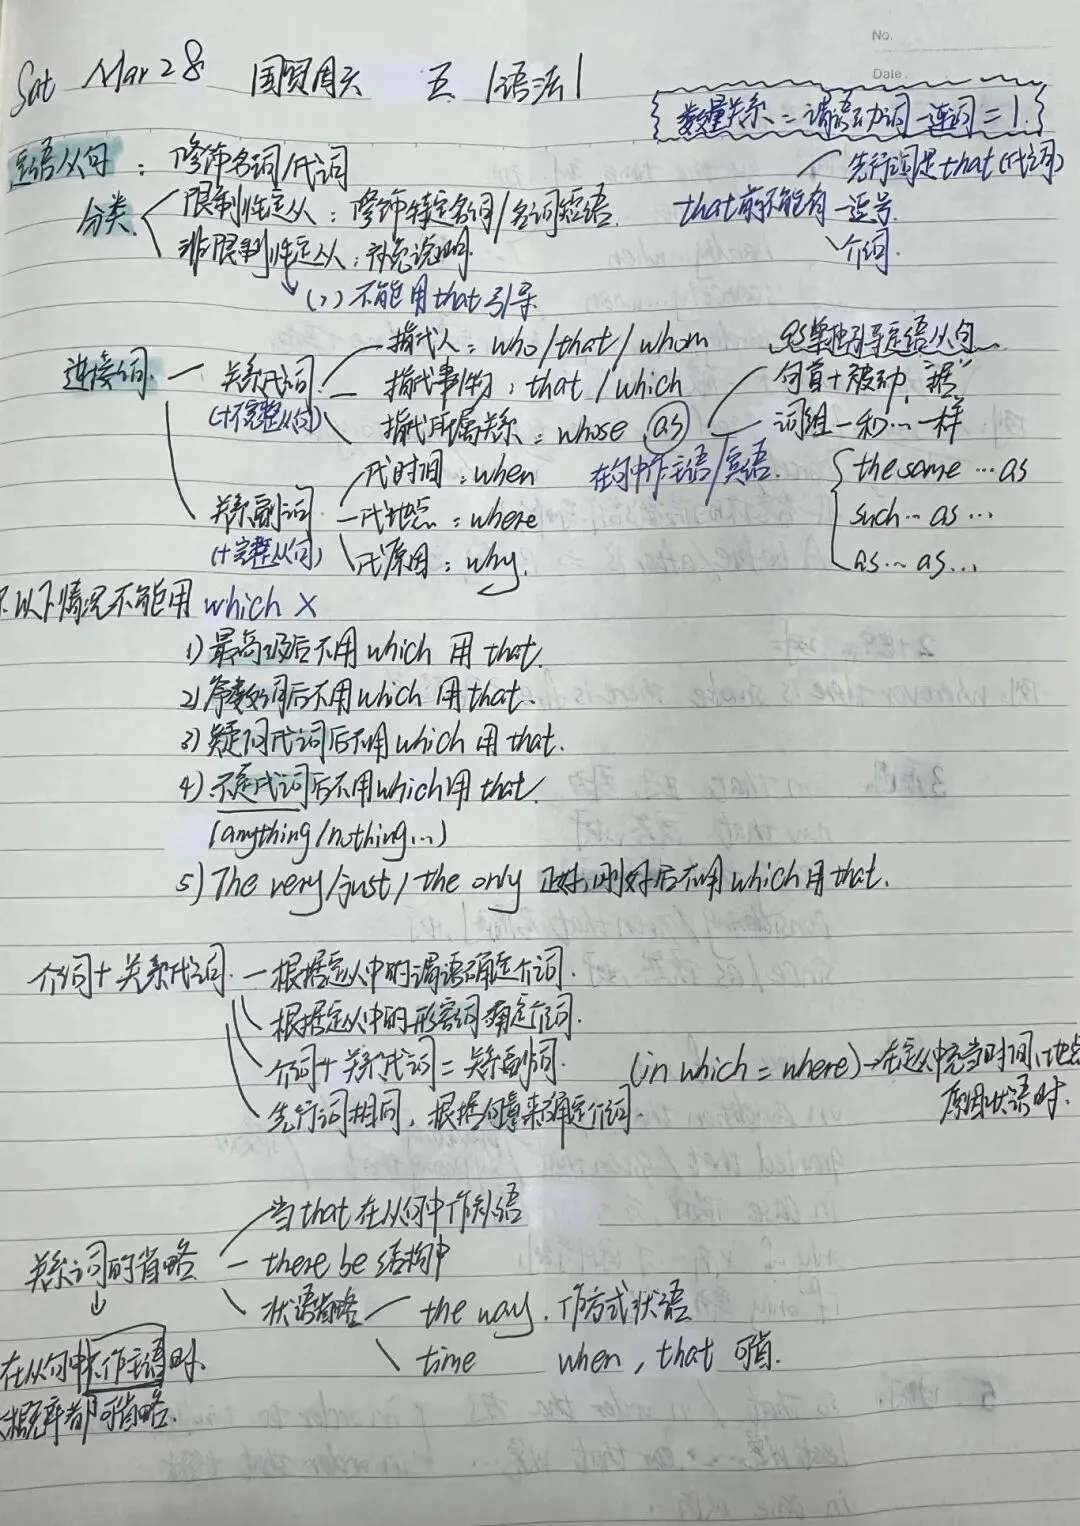 No.
Date.
Sat Mar 28 国贸周六 五 1语法1
数量关系=谓语动词-连词=1.
定语从句:修饰名词/代词
先行词是that(代词)
分类 限制性定从:修饰特定名词/名词短语.
that前不能有 逗号.
非限制性定从:补充说明.
介词.
(,)不能用that引导
连接词. 关系代词 指代人:who/that/whom
(+不完整从句) 指代事物:that/which
指代所属关系:whose as
在句中作主语/宾语.
单独引导定语从句
句首+被动,"据"
词组 和…一样
the same …as
such…as…
as…as…
关系副词 代时间:when
代地点:where
(+完整从句) 代原因:why.
以下情况不能用which ×
1)最高级后不用which 用that.
2)序数词后不用which 用that.
3)疑问代词后不用which用that.
4)不定代词后不用which用that.
(anything/nothing…)
5)The very/just/the only 正好,刚好后不用which用that.
介词+关系代词. 根据定从中的谓语确定介词.
根据定从中的形容词确定介词.
介词+关系代词=关系副词. (in which = where)→在定从中充当时间、地点
原因状语时.
先行词相同,根据句意来确定介词.
当that在从句中作补语
关系词的省略 there be 结构中
状语省略 the way. 作方式状语
time when, that 可省.
在从句中不作主语时.
大概率都可省略.